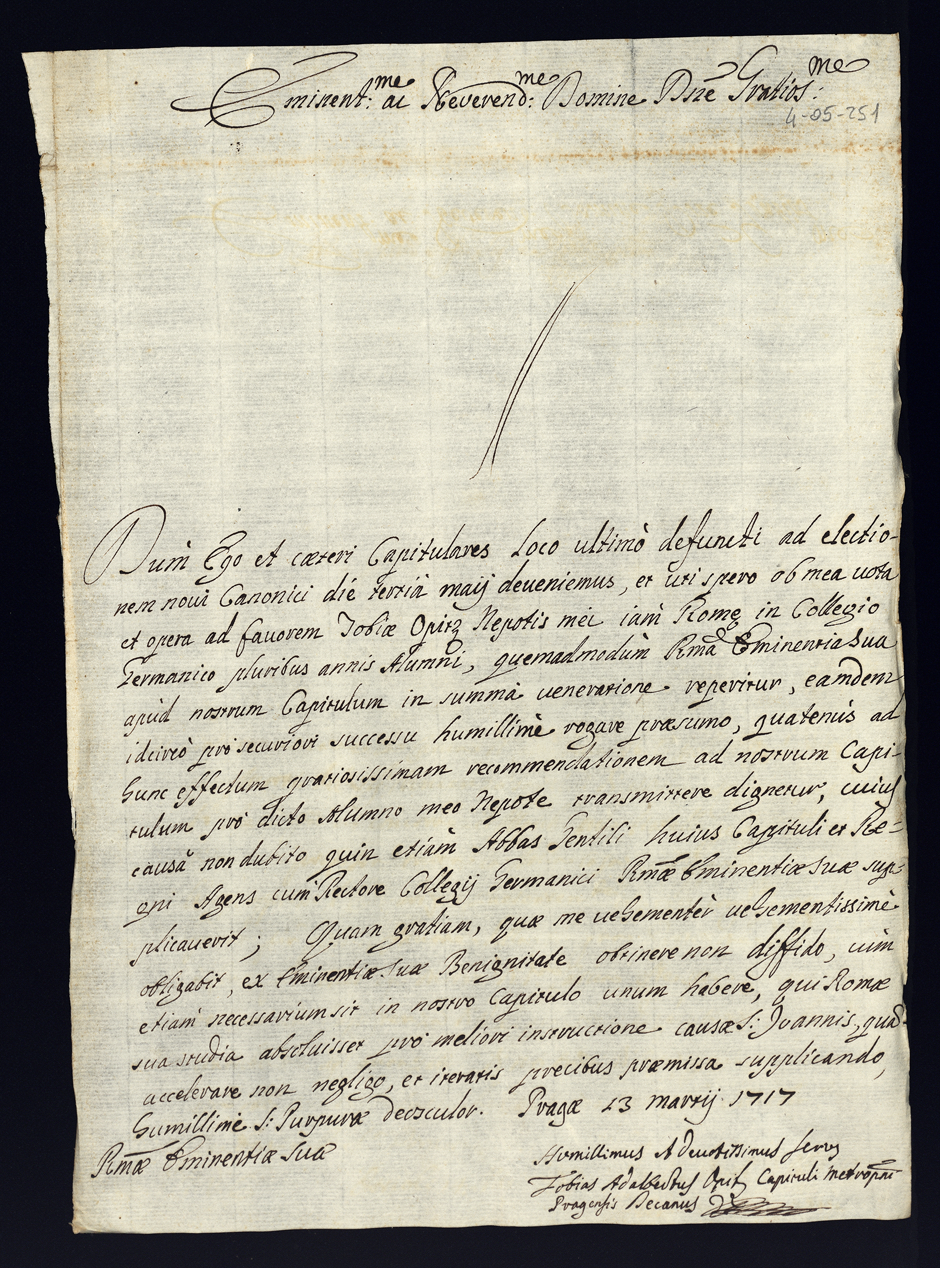 Eminent:me ac Reverend:me Domine Dne Gratios:me
4-05-251
Dum Ego et cæteri Capitulares Loco ultimò defuncti ad electio-
nem noui Canonici die tertiâ maij deueniemus, et uti spero ob mea uota
et opera ad fauorem Tobiæ Opitz Nepotis mei iam Romę in Collegio
Germanico pluribus annis Alumni, quemadmodùm Rma Eminentia Sua
apud nostrum Capitulum in summâ ueneratione reperitur, eamdem
idcircò pro securiori successu humillimè rogare præsumo, quatenùs ad
hunc effectum gratiosissimam recommendationem ad nostrum Capi-
tulum pro dicto Alumno meo Nepote transmittere dignetur, cuius
causâ non dubito quin etiàm Abbas Gentili huius Capituli et Re-
gni Agens cum Rectore Collegij Germanici Rmæ Eminentiæ Suæ sup-
plicauerit; Quam gratiam, quæ me uehementèr uehementissimè
obligabit, ex Eminentiæ Suæ Benignitate obtinere non diffido, cùm
etiam necessarium sit in nostro Capitulo unum habere, qui Romæ
sua studia absoluisset pro meliori instructione causæ S: Joannis, quā
accelerare non negligo, et iteratis precibus præmissa supplicando,
humillimè S: Purpuræ deosculor. Pragæ 13 martij 1717
Rmæ Eminentiæ Suæ
Humillimus Adeuotissimus Seruus
Tobias Adalbertus Opitz Capituli metropni
Pragensis Decanus